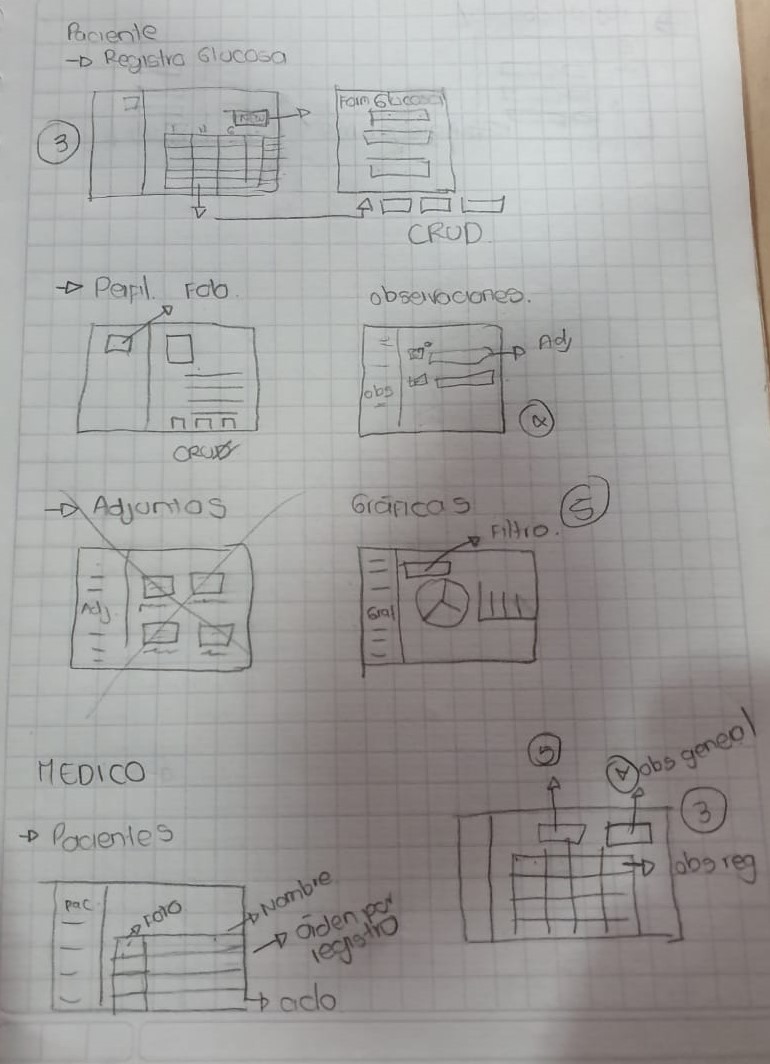 Paciente
→ Registro Glucosa
3
New
Form Glucosa
CRUD
→ Perfil. Foto.
CRUD
Observaciones.
obs
Adj
→ Adjuntos
Adj
Gráficas
5
Filtro.
Graf
MEDICO
→ Pacientes
Pac
Foto
Nombre
Orden por
registro
5
obs general
3
obs reg